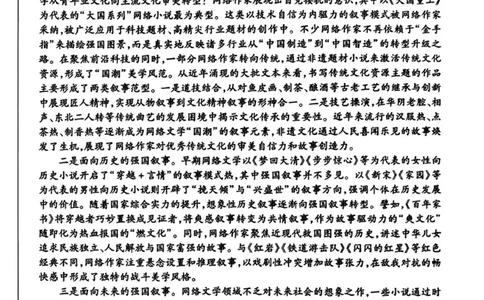 为代表的“大国系列”网络小说最为典型。这类以技术自信为内驱力的叙事模式被网络作家
采纳,被广泛应用于科技题材、高精尖行业题材的创作中。不少网络作家不再依赖于“金手
指”来描绘强国图景,而是真实地反映诸多行业从“中国制造”到“中国智造”的转型升级之
路。在聚焦前沿科技的同时,一部分网络作家转向传统,通过非遗题材小说来激活传统文化
资源,形成了“国潮”美学风范。从近年涌现的大批文本来看,书写传统文化资源主题的作品
主要形成了两类叙事范型。一是道技结合,从对皮皮画、制茶、酿酒等古老工艺的继承与创新
中展现匠人精神,实现从物叙事到文化精神叙事的形神合一。二是技艺操演,在华阴老腔、相
声、东北二人转等传统曲艺的发展困境中揭示文化传承的重要性。近年来流行的汉服热、点
茶热、制香热等逐渐成为网络文学“国潮”的叙事元素,非遗文化通过人民喜闻乐见的故事焕
发了生机,展现了网络作家对优秀传统文化的审美自信力和故事创造力。
二是面向历史的强国叙事。早期网络文学以《梦回大清》《步步惊心》等为代表的女性向
历史小说开启了“穿越+言情”的叙事模式热,其中强国叙事并不多见。以《新宋》《家园》等
为代表的男性向历史小说则开辟了“挽天倾”与“兴盛世”的叙事方向,强调个体在历史发展
中的价值。随着国家综合实力的提升,想象性历史叙事逐渐向强国叙事转型。譬如,《百年家
书》将穿越者巧妙置换成见证者,将爽感叙事转变为共情叙事,作为故事驱动力的“爽文化”
随即化为热血报国的“燃文化”。同时,网络作家聚焦近现代救国图强的历史,讲述中华儿女
追求民族独立、人民解放与国家富强的故事。与《红岩》《铁道游击队》《闪闪的红星》等红色
经典不同,网络作家注重悬念设置和推理叙事,以戏剧性冲突增加故事张力,在敌我对抗的畅
快感中形成了独特的战斗美学风格。
三是面向未来的强国叙事。网络文学领域不乏对未来社会的想象之作,一些小说通过时